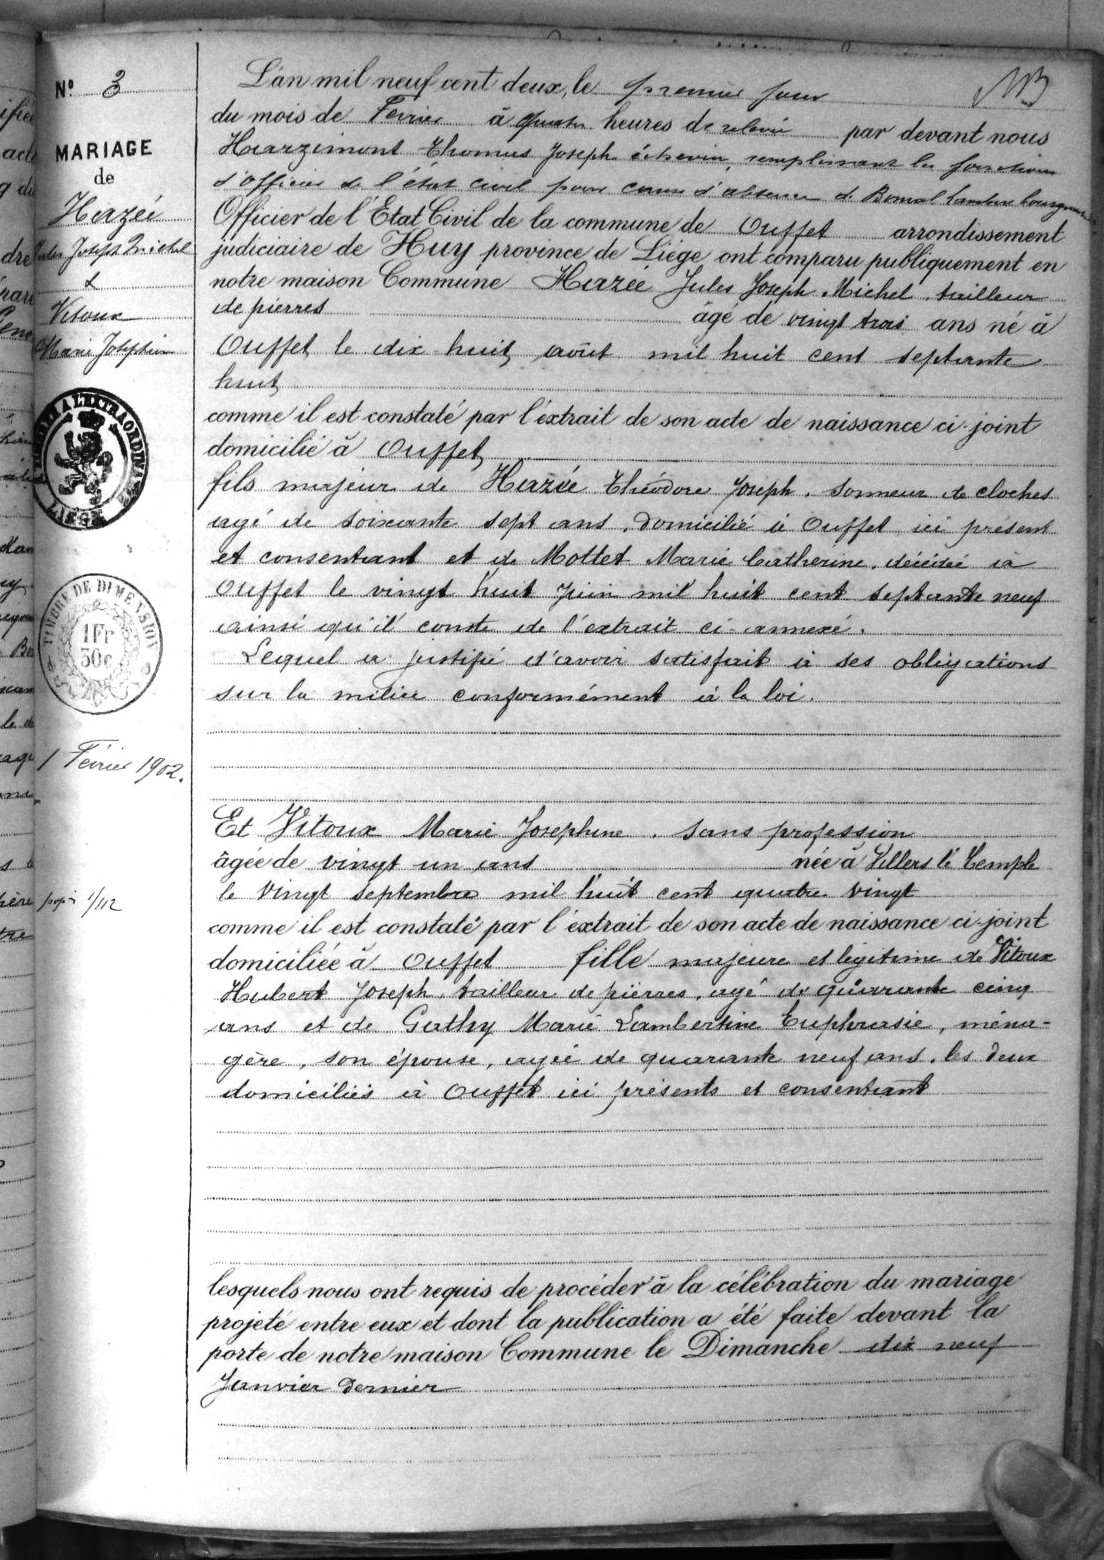 N° 3
MARIAGE
de
Hazée
Jules Joseph Michel
&
Vitoux
Marie Josephine
LIEGE
TIMBRE DE DIMENSION
1 Fr
30c
1 Février 1902.
1/112
L'an mil neuf cent deux, le premier jour
du mois de Fevrier à quatre heures de relevée par devant nous
Harzimont Thomas Joseph échevin, remplissant les fonctions
d'officier de l'état civil pour cause d'absence de Bomal Lambert bourgmestre
Officier de l'Etat Civil de la commune de Ouffet arrondissement
judiciaire de Huy province de Liége ont comparu publiquement en
notre maison Commune Hazée Jules Joseph Michel, tailleur
de pierres âgé de vingt trois ans né à
Ouffet le dix huit août mil huit cent septante
huit
comme il est constaté par l'extrait de son acte de naissance ci-joint
domicilié à Ouffet
fils majeur de Hazée Théodore Joseph, sonneur de cloches
agé de soixante sept ans, domicilié à Ouffet ici présent
et consentant et de Mottet Marie Catherine, décédée à
Ouffet le vingt huit Juin mil huit cent septante neuf
ainsi qu'il conste de l'extrait ci-annexé.
Lequel a justifié d'avoir satisfait à ses obligations
sur la milice conformément à la loi.
Et Vitoux Marie Josephine, sans profession
âgée de vingt un ans née à Villers le Temple
le vingt septembre mil huit cent quatre vingt
comme il est constaté par l'extrait de son acte de naissance ci-joint
domiciliée à Ouffet fille majeure et légitime de Vitoux
Hubert Joseph, tailleur de pierres, agé de quarante cinq
ans et de Gathy Marie Lambertine Euphrasie, ména-
gère, son épouse, agée de quarante neuf ans, les deux
domiciliés à Ouffet ici présents et consentant
lesquels nous ont requis de procéder à la célébration du mariage
projeté entre eux et dont la publication a été faite devant la
porte de notre maison Commune le Dimanche dix neuf
Janvier dernier